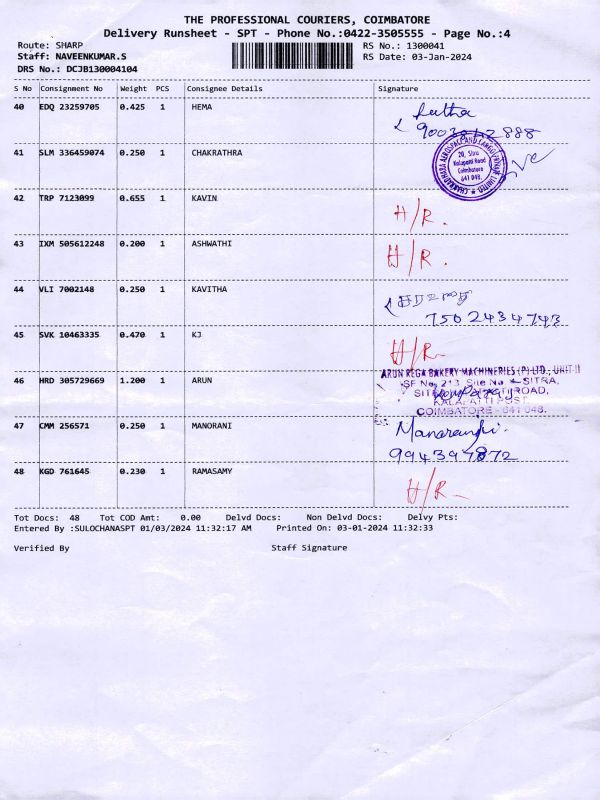 THE PROFESSIONAL COURIERS, COIMBATORE
Delivery Runsheet - SPT - Phone No.:0422-3505555 - Page No.:4
Route: SHARP RS No.: 1300041
Staff: NAVEENKUMAR.S RS Date: 03-Jan-2024
DRS No.: DCJB130004104
S No Consignment No Weight PCS Consignee Details Signature
40 EDQ 23259705 0.425 1 HEMA
41 SLM 336459074 0.250 1 CHAKRATHRA
20, Sitra
Kalapatti Road
Coimbatore
641 048.
42 TRP 7123099 0.655 1 KAVIN H/R.
43 IXM 505612248 0.200 1 ASHWATHI H/R.
44 VLI 7002148 0.250 1 KAVITHA
7502434743
45 SVK 10463335 0.470 1 KJ H/R
ARUN REGA BAKERY MACHINERIES (P) LTD., UNIT-II
46 HRD 305729669 1.200 1 ARUN SF No. 213, Site No SITRA,
ROAD,
KALAPATTI POST
COIMBATORE - 641 048.
47 CMM 256571 0.250 1 MANORANI
9943947872
48 KGD 761645 0.230 1 RAMASAMY H/R
Tot Docs: 48 Tot COD Amt: 0.00 Delvd Docs: Non Delvd Docs: Delvy Pts:
Entered By :SULOCHANASPT 01/03/2024 11:32:17 AM Printed On: 03-01-2024 11:32:33
Verified By Staff Signature